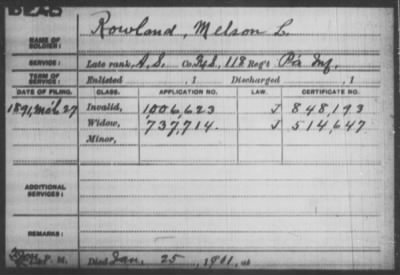 DEAD
NAME OF SOLDIER: Rowland, Melson L.
SERVICE: Late rank, A.S. Co. F&S, 118 Reg't Pa Inf.
TERM OF SERVICE: Enlisted , 1 Discharged , 1
DATE OF FILING. CLASS. APPLICATION NO. LAW. CERTIFICATE NO.
1891, Mch 27 Invalid, 1006,623 J 848,193
Widow, 737,714. J 514,647
Minor,
ADDITIONAL SERVICES:
REMARKS:
P. M. Died Jan. 25, 1901, at